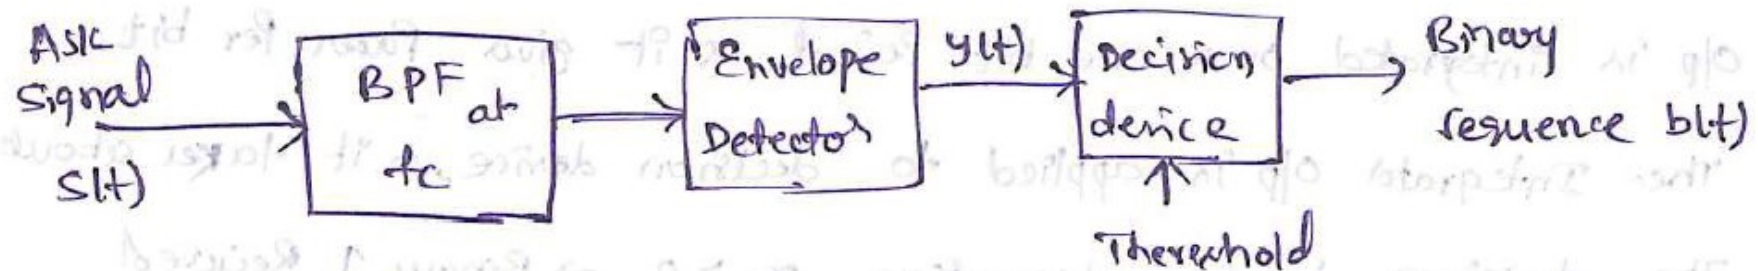 ASK
Signal
S(t)
BPF at
fc
Envelope
Detector
y(t)
Decision
device
Thereshold
Binary
sequence b(t)